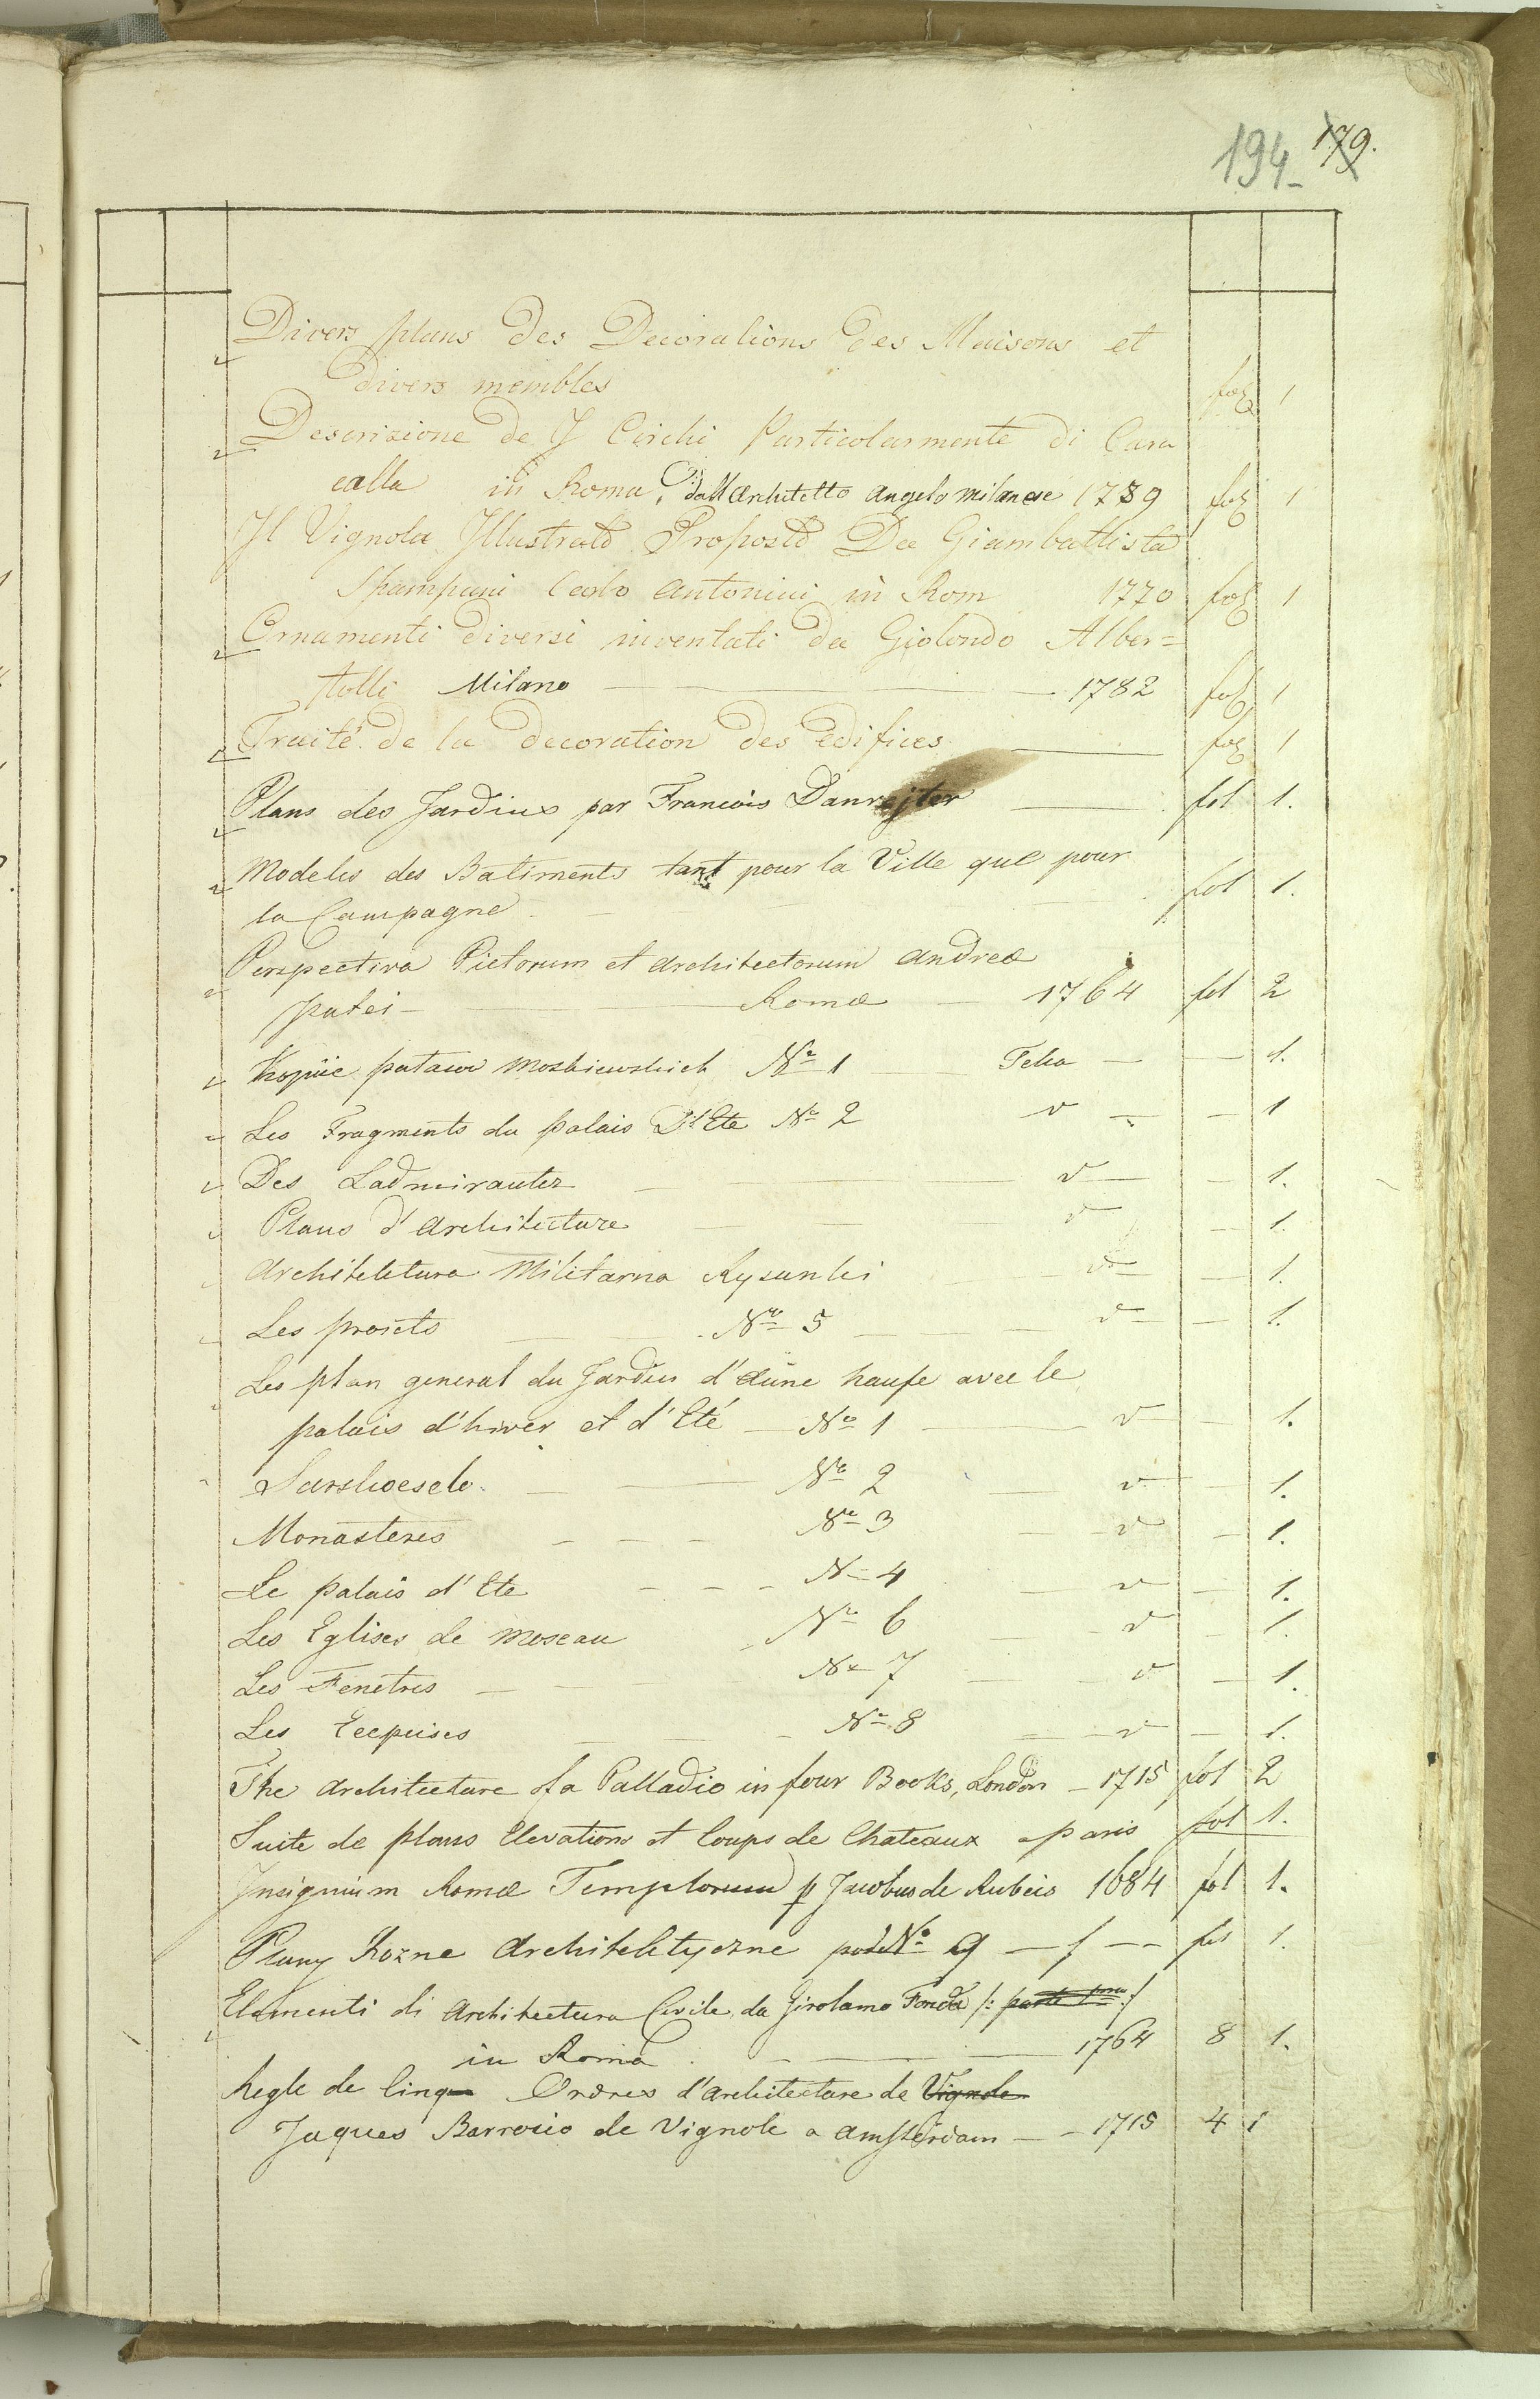 194. 179.
Divers plans des Decorations des Maisons et
divers membles fol 1
Descrizione de J Circhi Particolarmente di Cara
calla in Roma, dall Architetto angelo milanese 1789 fol 1
Il Vignola Illustrato Proposto Da Giambattista
Spampani Carlo Antonini in Rom 1770 fol 1
Ornamenti diversi inventati da Giolondo Alber=
tolli Milano 1782 fol 1
Traité de la decoration des edifices fol 1
Plans des Jardins par Francois Danrejter fol 1.
Modeles des Batiments tant pour la Ville que pour
la Campagne fol 1.
Perspectiva Pictorum et Architectorum Andreæ
putei Romæ 1764 fol 2
Kopije pałacow Moskiewskich No 1 Teka 1.
Les Fragments du palais D'Ete No 2 v 1
Des Ladmirautez v 1.
Plans d'Architecture v 1.
Architektura Militarna Rysunki v 1.
Les proiets No 5 v 1.
Les plan general du Jardin d'Aune haupe avec le
palais d'hiver et d'Eté No 1 v 1.
Sarskoeselo No 2 v 1.
Monasteres No 3 v 1.
Le palais d'Ete No 4 v 1.
Les Eglises de Moscau No 6 v 1.
Les Fenetres No 7 v 1.
Les No 8 v 1.
The Architecture of a Palladio in four Books, London 1715 fol 2
Suite de plans Elevations et Coups de Chateaux a paris fol 1.
Insignium Romæ Templorum p Jacobus de Rubeis 1684 fol 1.
Plany Rozne Architektyczne pod No 9 fol 1.
Elementi di Architectura Civile da Girolamo Fonda /: parte 1ma :/
in Roma 1764 8 1.
Regle de Cinq Ordres d'architecture de Vignole
Jaques Barrozio de Vignole a Amsterdam 1715 4 1